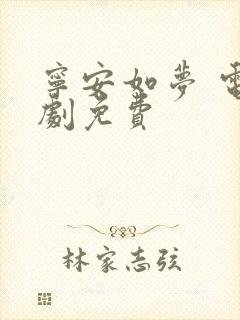 寧安如夢 電
劇免費
林家志弦